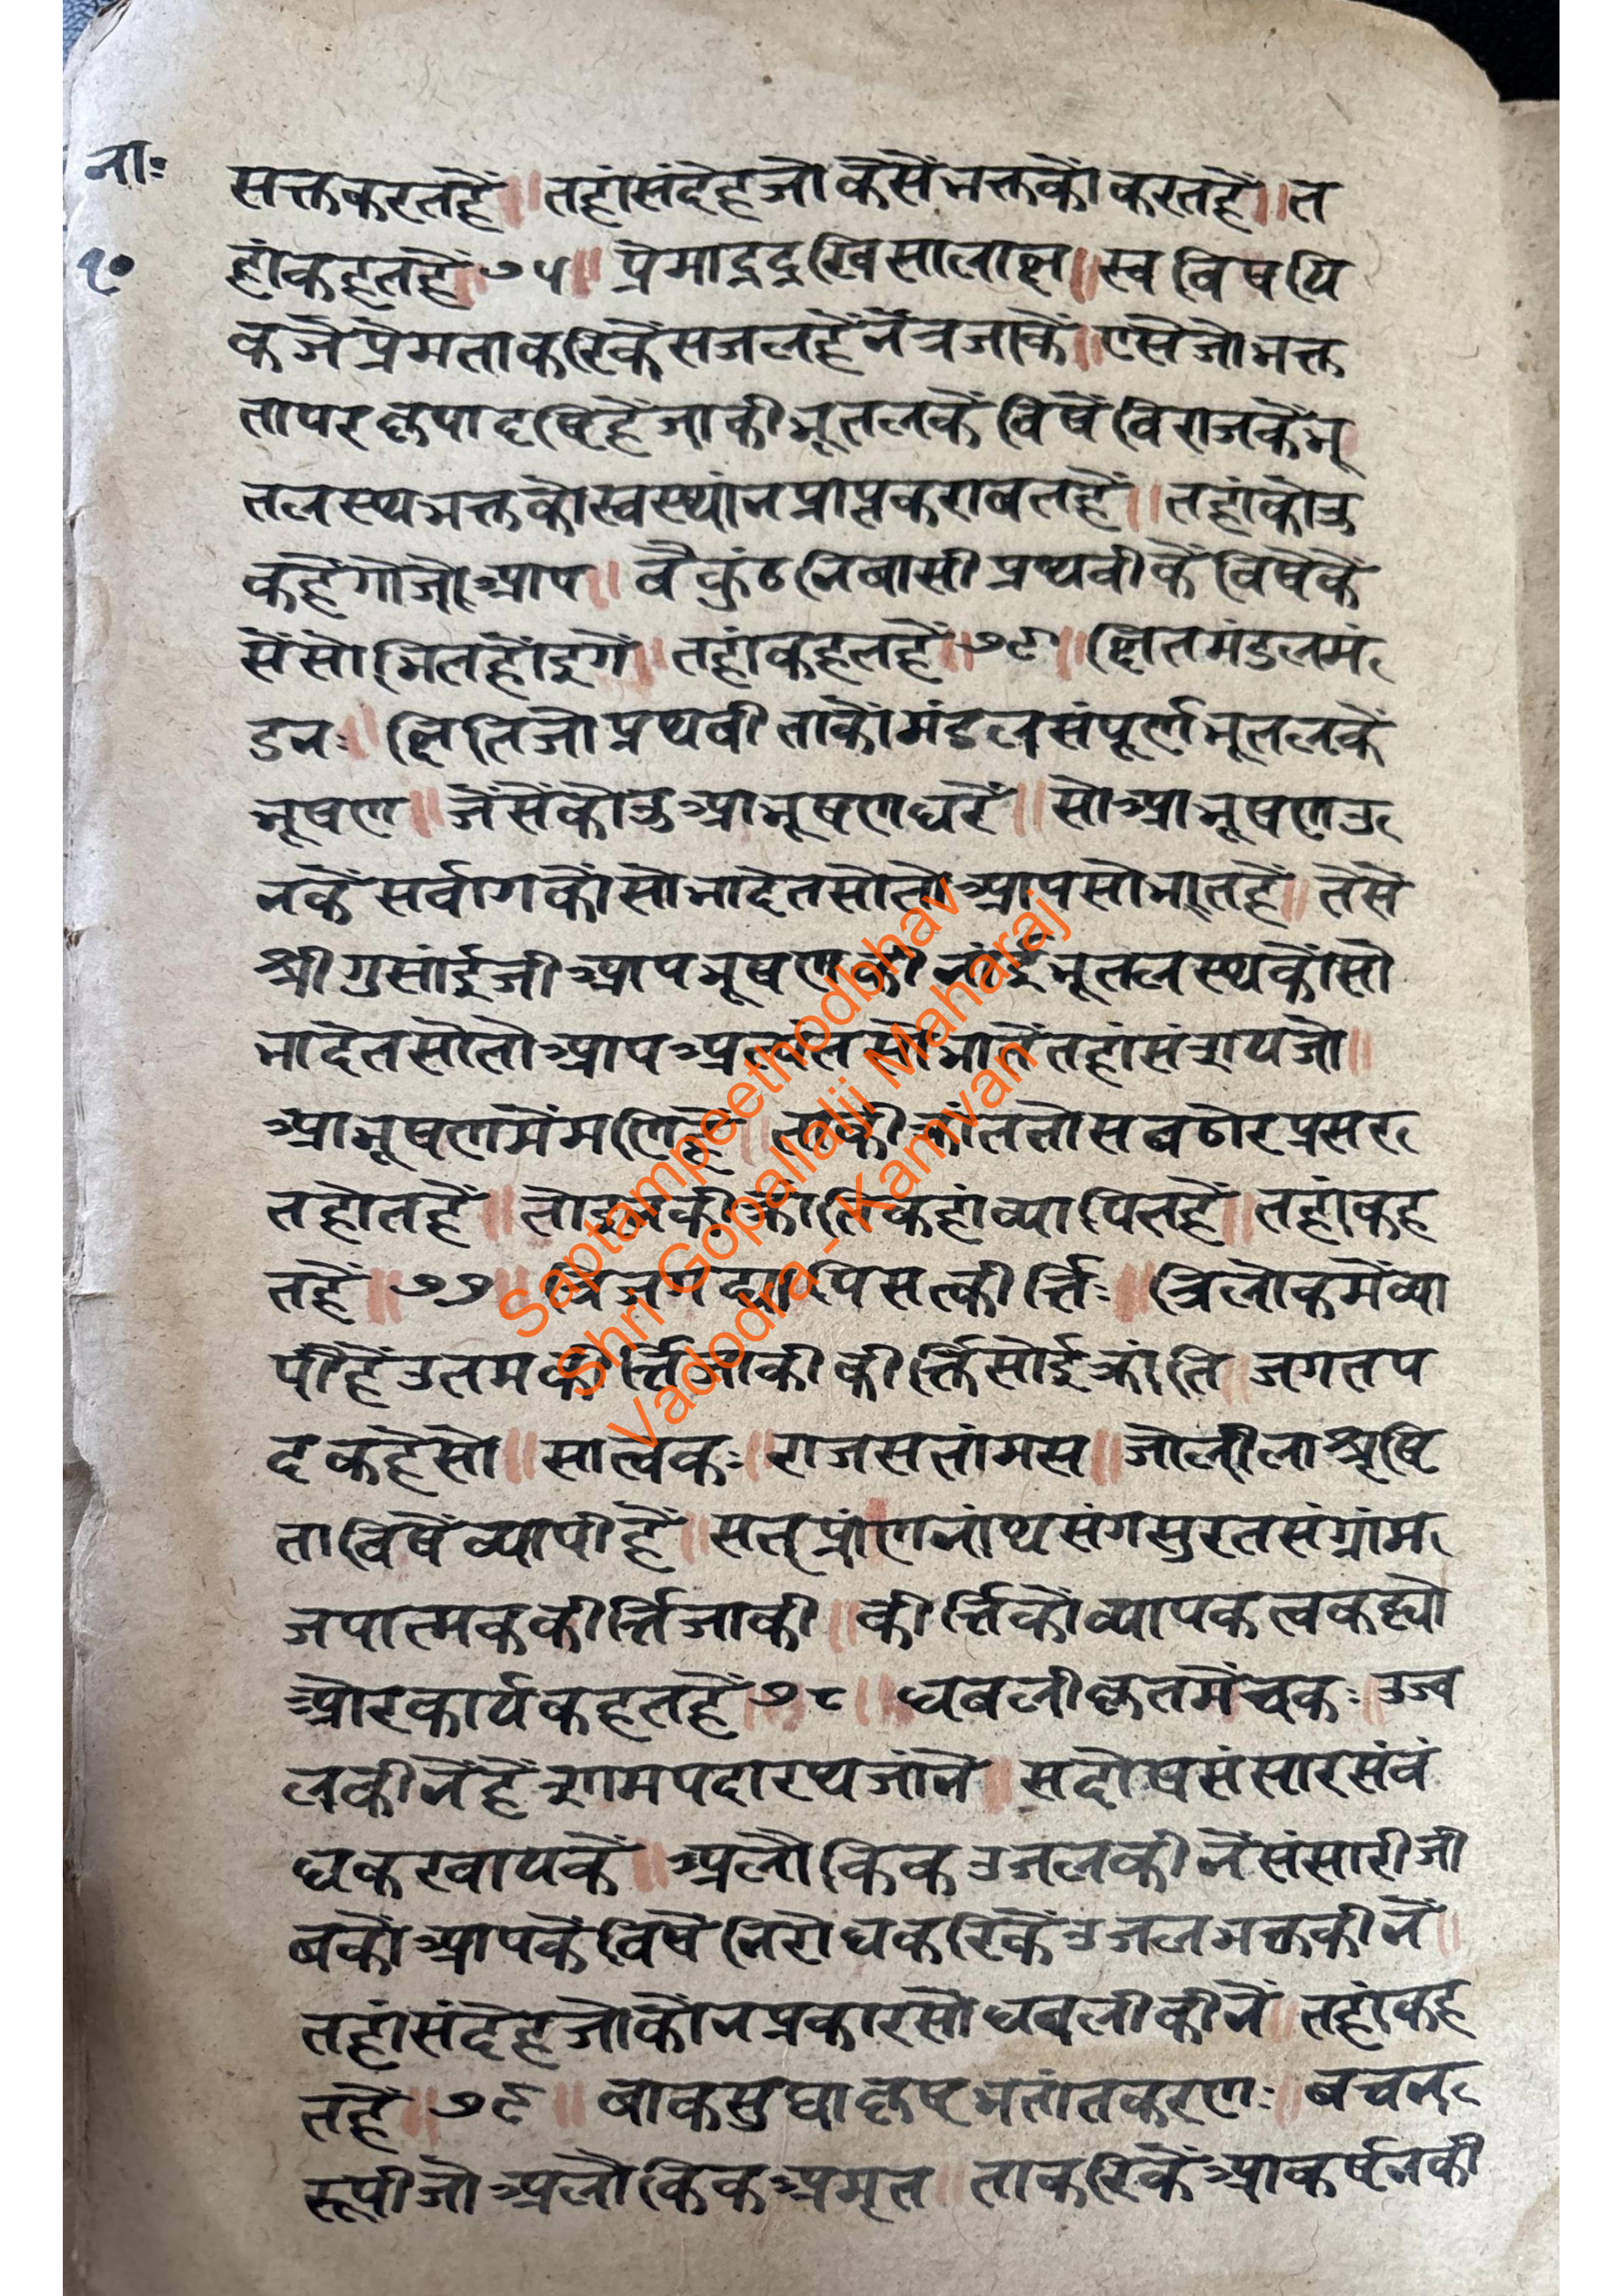 नाः
१०
सक्तकरतहैं॥ तहांसंदेहजोकैसेंभक्तकौंकरतहैं॥त
हांकहतहैं७५॥ प्रेमार्द्रद्रखिसालाक्ष॥स्वविषयि
कजैप्रेमताकरिकैंसजलहैंनेंत्रजाकें॥एसेजोभक्त
तापरकृपादृष्टिहैंजाकीभूतलकेंविषेंविराजकैंभू
तलस्थभक्तकोस्वस्थांनप्राप्तकरावतहैं॥तहांकोउ
कहेंगोजोआप॥ वैकुंठनिवासीप्रथवीकेंविषेंकें
सेंसोभितहोंइगें॥ तहांकहतहैं॥७६॥क्षितमंडलमं
डनः॥ क्षितिजोप्रथवीताकोमंडलसंपूर्णभूतलकें
भूषण॥ जैंसेंकोउआभूषणधरें॥ सोआभूषणउ
नकेंसर्वागकोंसोभादेतसोतोआपसोभातहैं॥ तेंसे
श्रीगुसांईजीआपभूषणकीनांईभूतलस्थकोंसो
भादेतसोतोआपअत्यंतसोभातेंतहांसंशयजो॥
आभूषणमेंमणिहैं॥ ताकीकांततोसबठोरप्रसर
तहोतहैं॥ तोइनकीकांतिकहांव्यापितहैं॥तहांकह
तहैं॥७७॥ त्रिजगद्व्यापिसत्कीर्त्तिः॥ त्रिलोकमेंव्या
पीहैंउतमकीर्त्तिजाकीकीर्त्तिसोईकांति॥जगतप
दकहेसो॥ सात्वकः॥राजसतांमस॥जोलीलाश्रृष्टि
ताविषेंव्यापीहैं॥सतप्रांणनांथसंगसुरतसंग्रांम
जपात्मककीर्त्तिजाकी॥कीर्त्तिकोंव्यापकत्वकह्यो
औरकार्यकहतहैं७८॥ धवलीकृतमेंचकः॥उज्व
लकीनेंहैंश्यामपदारथजांनें॥सदोषसंसारसंवं
धकरवायकें॥अलौकिकउजलकीनेंसंसारीजी
वकोंआपकेंविषेनिरोधकरिकेंउजलभक्तकीनें॥
तहांसंदेहजोकोंनप्रकारसोधवलीकीनें॥तहांकह
तहैं॥७९॥ वाकसुधाकृष्टभक्तांतकरणः॥बचन
रूपीजोअलौकिकअमृत॥ताकरिकेंआकर्षनकी
Saptampeethodbhav
Shri Gopallalji Maharaj
Vadodra - Kamvan